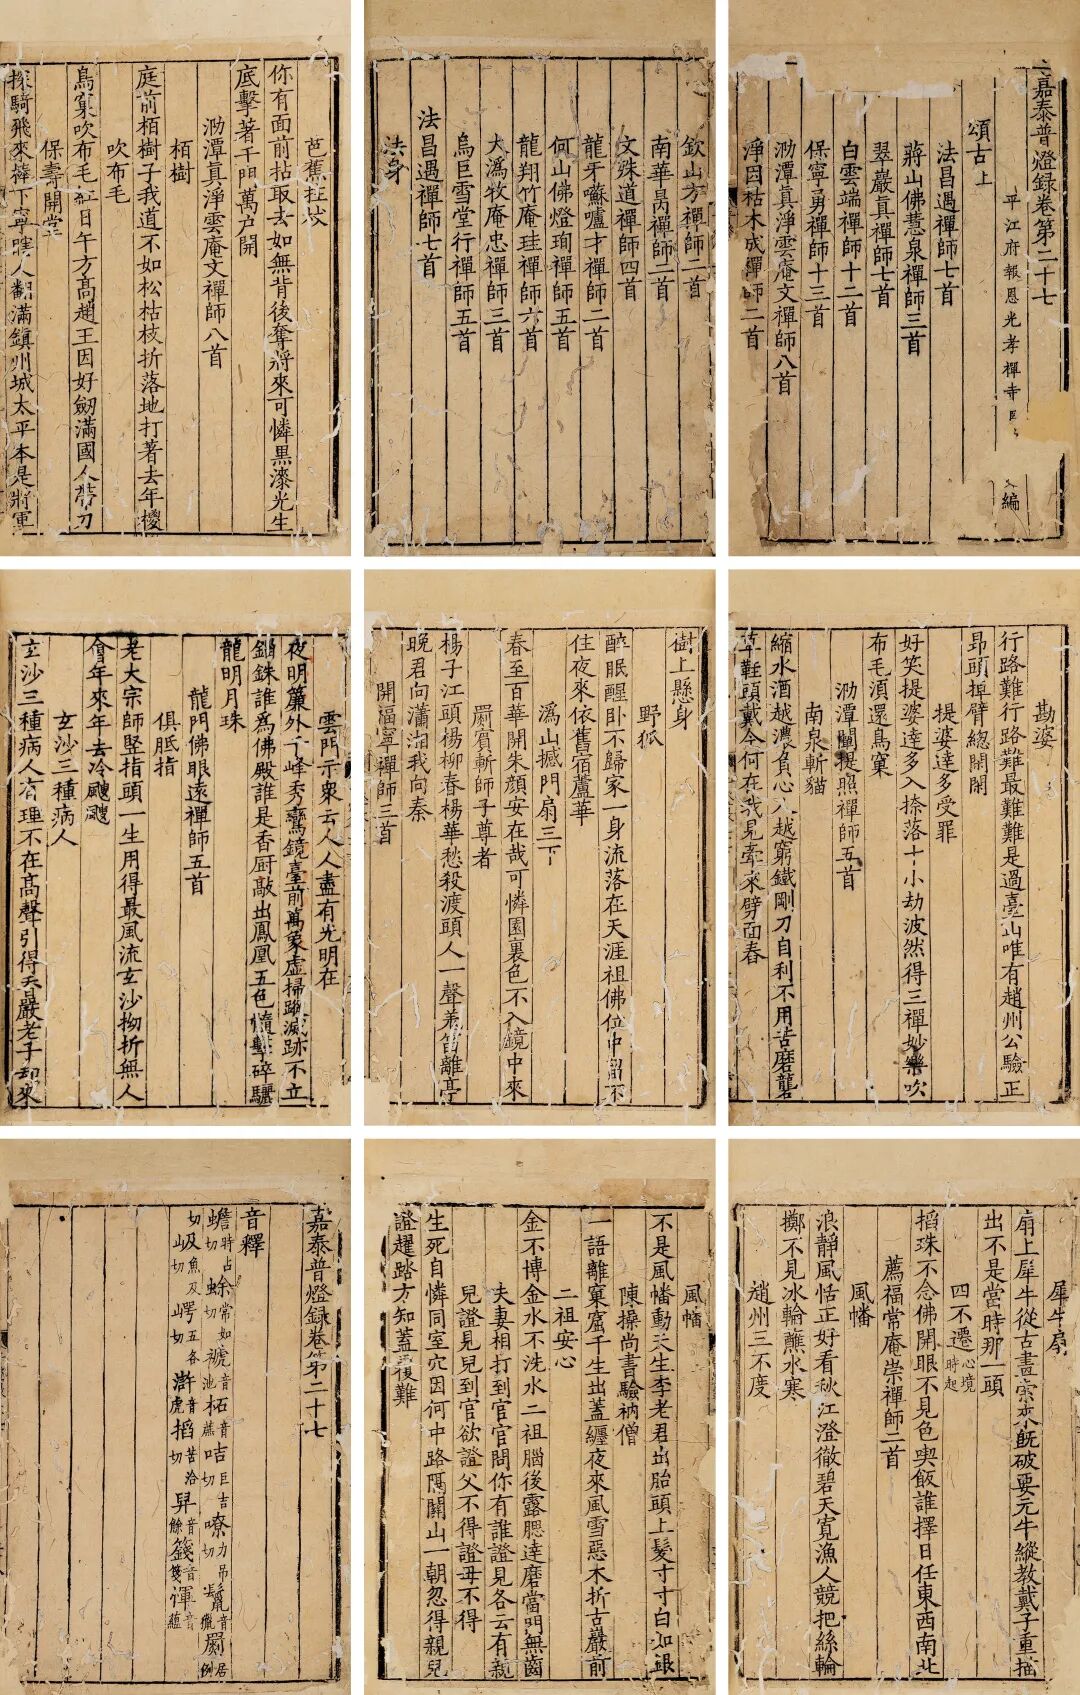 嘉泰普燈錄卷第二十七
平江府報恩光孝禪寺
編
頌古上
法昌遇禪師七首
蔣山佛慧泉禪師三首
翠巖真禪師七首
白雲端禪師十二首
保寧勇禪師十三首
泐潭真淨雲庵文禪師八首
淨因枯木成禪師二首
欽山方禪師二首
南華昺禪師二首
文殊道禪師四首
龍牙嚥嚧才禪師二首
何山佛燈珣禪師五首
龍翔竹庵珪禪師六首
大溈牧庵忠禪師三首
烏巨雪堂行禪師五首
法昌遇禪師七首
法身
芭蕉拄杖
你有面前拈取去如無背後奪將來可憐黑漆光生
底擊著千門萬户開
泐潭真淨雲庵文禪師八首
栢樹
庭前栢樹子我道不如松枯枝折落地打著去年㯶
吹布毛
鳥窠吹布毛紅日午方高趙王因好劒滿國人帶刀
保壽開堂
探騎飛來棒下寧瞎人翻滿鎮州城太平本是將軍
勘婆
行路難行路難最難難是過臺山唯有趙州公驗正
昂頭掉臂總閑閑
提婆達多受罪
好笑提婆達多入捺落十小劫波然得三禪妙樂吹
布毛湏還鳥窠
泐潭闡提照禪師五首
南泉斬貓
縮水酒越濃負心人越窮鐵剛刀自利不用苦磨礲
草鞋頭戴今何在我見牽來劈面舂
樹上懸身
野狐
醉眠醒卧不歸家一身流落在天涯祖佛位中留不
住夜來依舊宿蘆華
溈山撼門扇三下
春至百華開朱顔安在哉可憐園裏色不入鏡中來
罽賓斬師子尊者
楊子江頭楊柳春楊華愁殺渡頭人一聲羗笛離亭
晚君向瀟湘我向秦
開福寧禪師三首
雲門示衆云人人盡有光明在
夜明簾外千峰秀鸞鏡臺前萬象虛掃蹤滅跡不立
錙銖誰爲佛殿誰是香厨敲出鳳凰五色髓擊碎驪
龍明月珠
龍門佛眼遠禪師五首
俱胝指
老大宗師竪指頭一生用得最風流玄沙拗折無人
會年來年去冷颼颼
玄沙三種病人
玄沙三種病人有理不在髙聲引得杏巖老子却來
犀牛扇
扇上犀牛從古畫索來既破要元牛縱教戴子重描
出不是當時那一頭
四不遷心境時起
搯珠不念佛開眼不見色喫飯誰擇日任東西南北
薦福常庵崇禪師二首
風幡
浪靜風恬正好看秋江澄徹碧天寬漁人競把絲輪
擲不見冰輪蘸水寒
趙州三不度
風幡
不是風幡動天生李老君出胎頭上髮寸寸白如銀
陳操尚書驗衲僧
一語離窠窟千生出蓋纏夜來風雪惡木折古巖前
二祖安心
金不博金水不洗水二祖腦後露腮達磨當門無齒
夫妻相打到官官問你有誰證見各云有親
兒證見兒到官欲證父不得證毋不得
生死自憐同室穴因何中路隔關山一朝忽得親兒
證趯踏方知蓋覆難
嘉泰普燈錄卷第二十七
音釋
蟾時占切 蜍常如 褫池 柘音蔗 咭巨吉切 嘹力吊切 鬣音獵 罽居例
切 岌魚及切 崿五各切 滸音虎 搯苦洽切 舁音餘 籛音箋 惲音藴